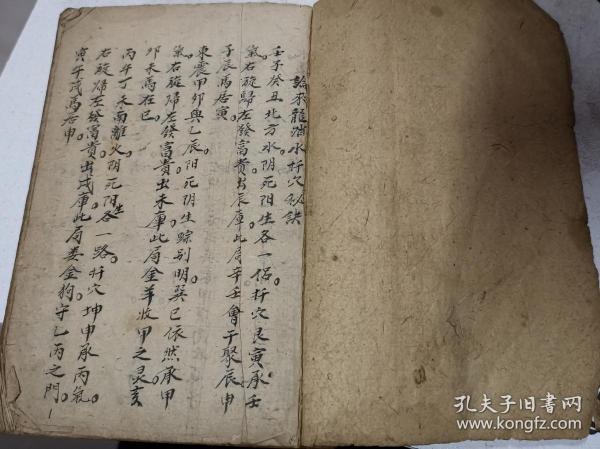 論來龍消水扦穴秘訣
壬子癸丑北方水阴死阳生各一侣扦穴艮寅承壬
氣右旋歸左發富貴出辰庫此局辛壬會于聚辰申
子辰馬居寅
東震甲卯與乙辰阳死阴生踪别明巽巳依然承甲
氣右旋歸左發富貴出未庫此局金羊收甲之灵亥
卯未馬在巳
丙午丁未南離火阴死阳生各一路扦穴坤申承丙氣
右旋歸左發富貴出戌庫此局娄金狗守乙丙之門
寅午戌馬居申
孔夫子旧书网
www.kongfz.com